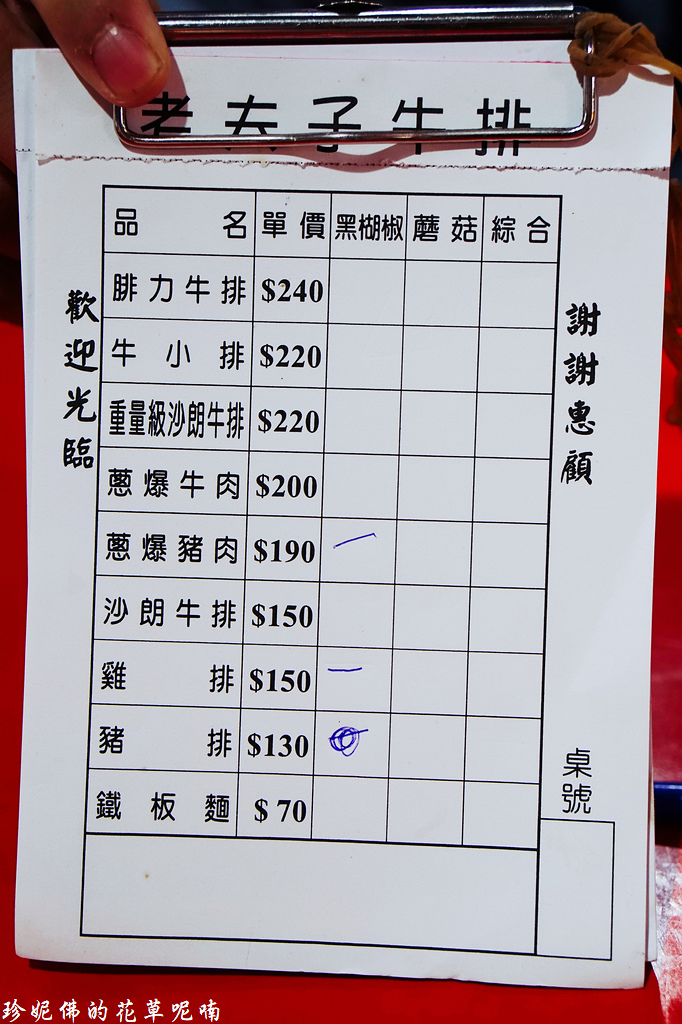 老夫子牛排
品名 單價 黑楜椒 蘑菇 綜合
腓力牛排 $240
牛小排 $220
重量級沙朗牛排 $220
蔥爆牛肉 $200
蔥爆豬肉 $190 一
沙朗牛排 $150
雞排 $150 一
豬排 $130
鐵板麵 $70
歡迎光臨
謝謝惠顧
桌號
珍妮佛的花草呢喃